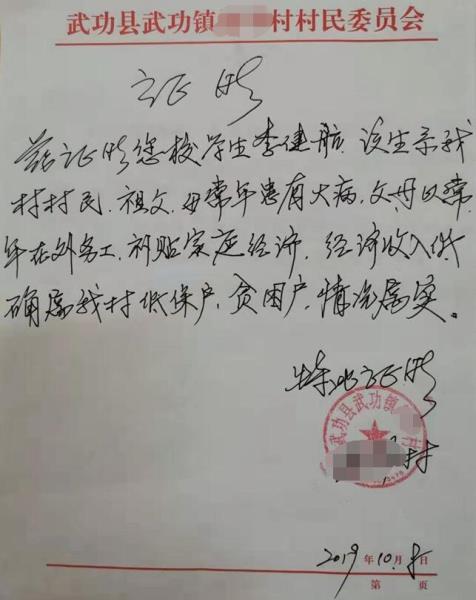 武功县武功镇 村村民委员会
证明
兹证明您校学生李健航,该生系我
村村民,祖父、母常年患有大病,父母以常
年在外务工,补贴家庭经济,经济收入低
确属我村低保户,贫困户,情况属实。
特此证明
武功县武功镇 村
村
2019年10月8日
第 页